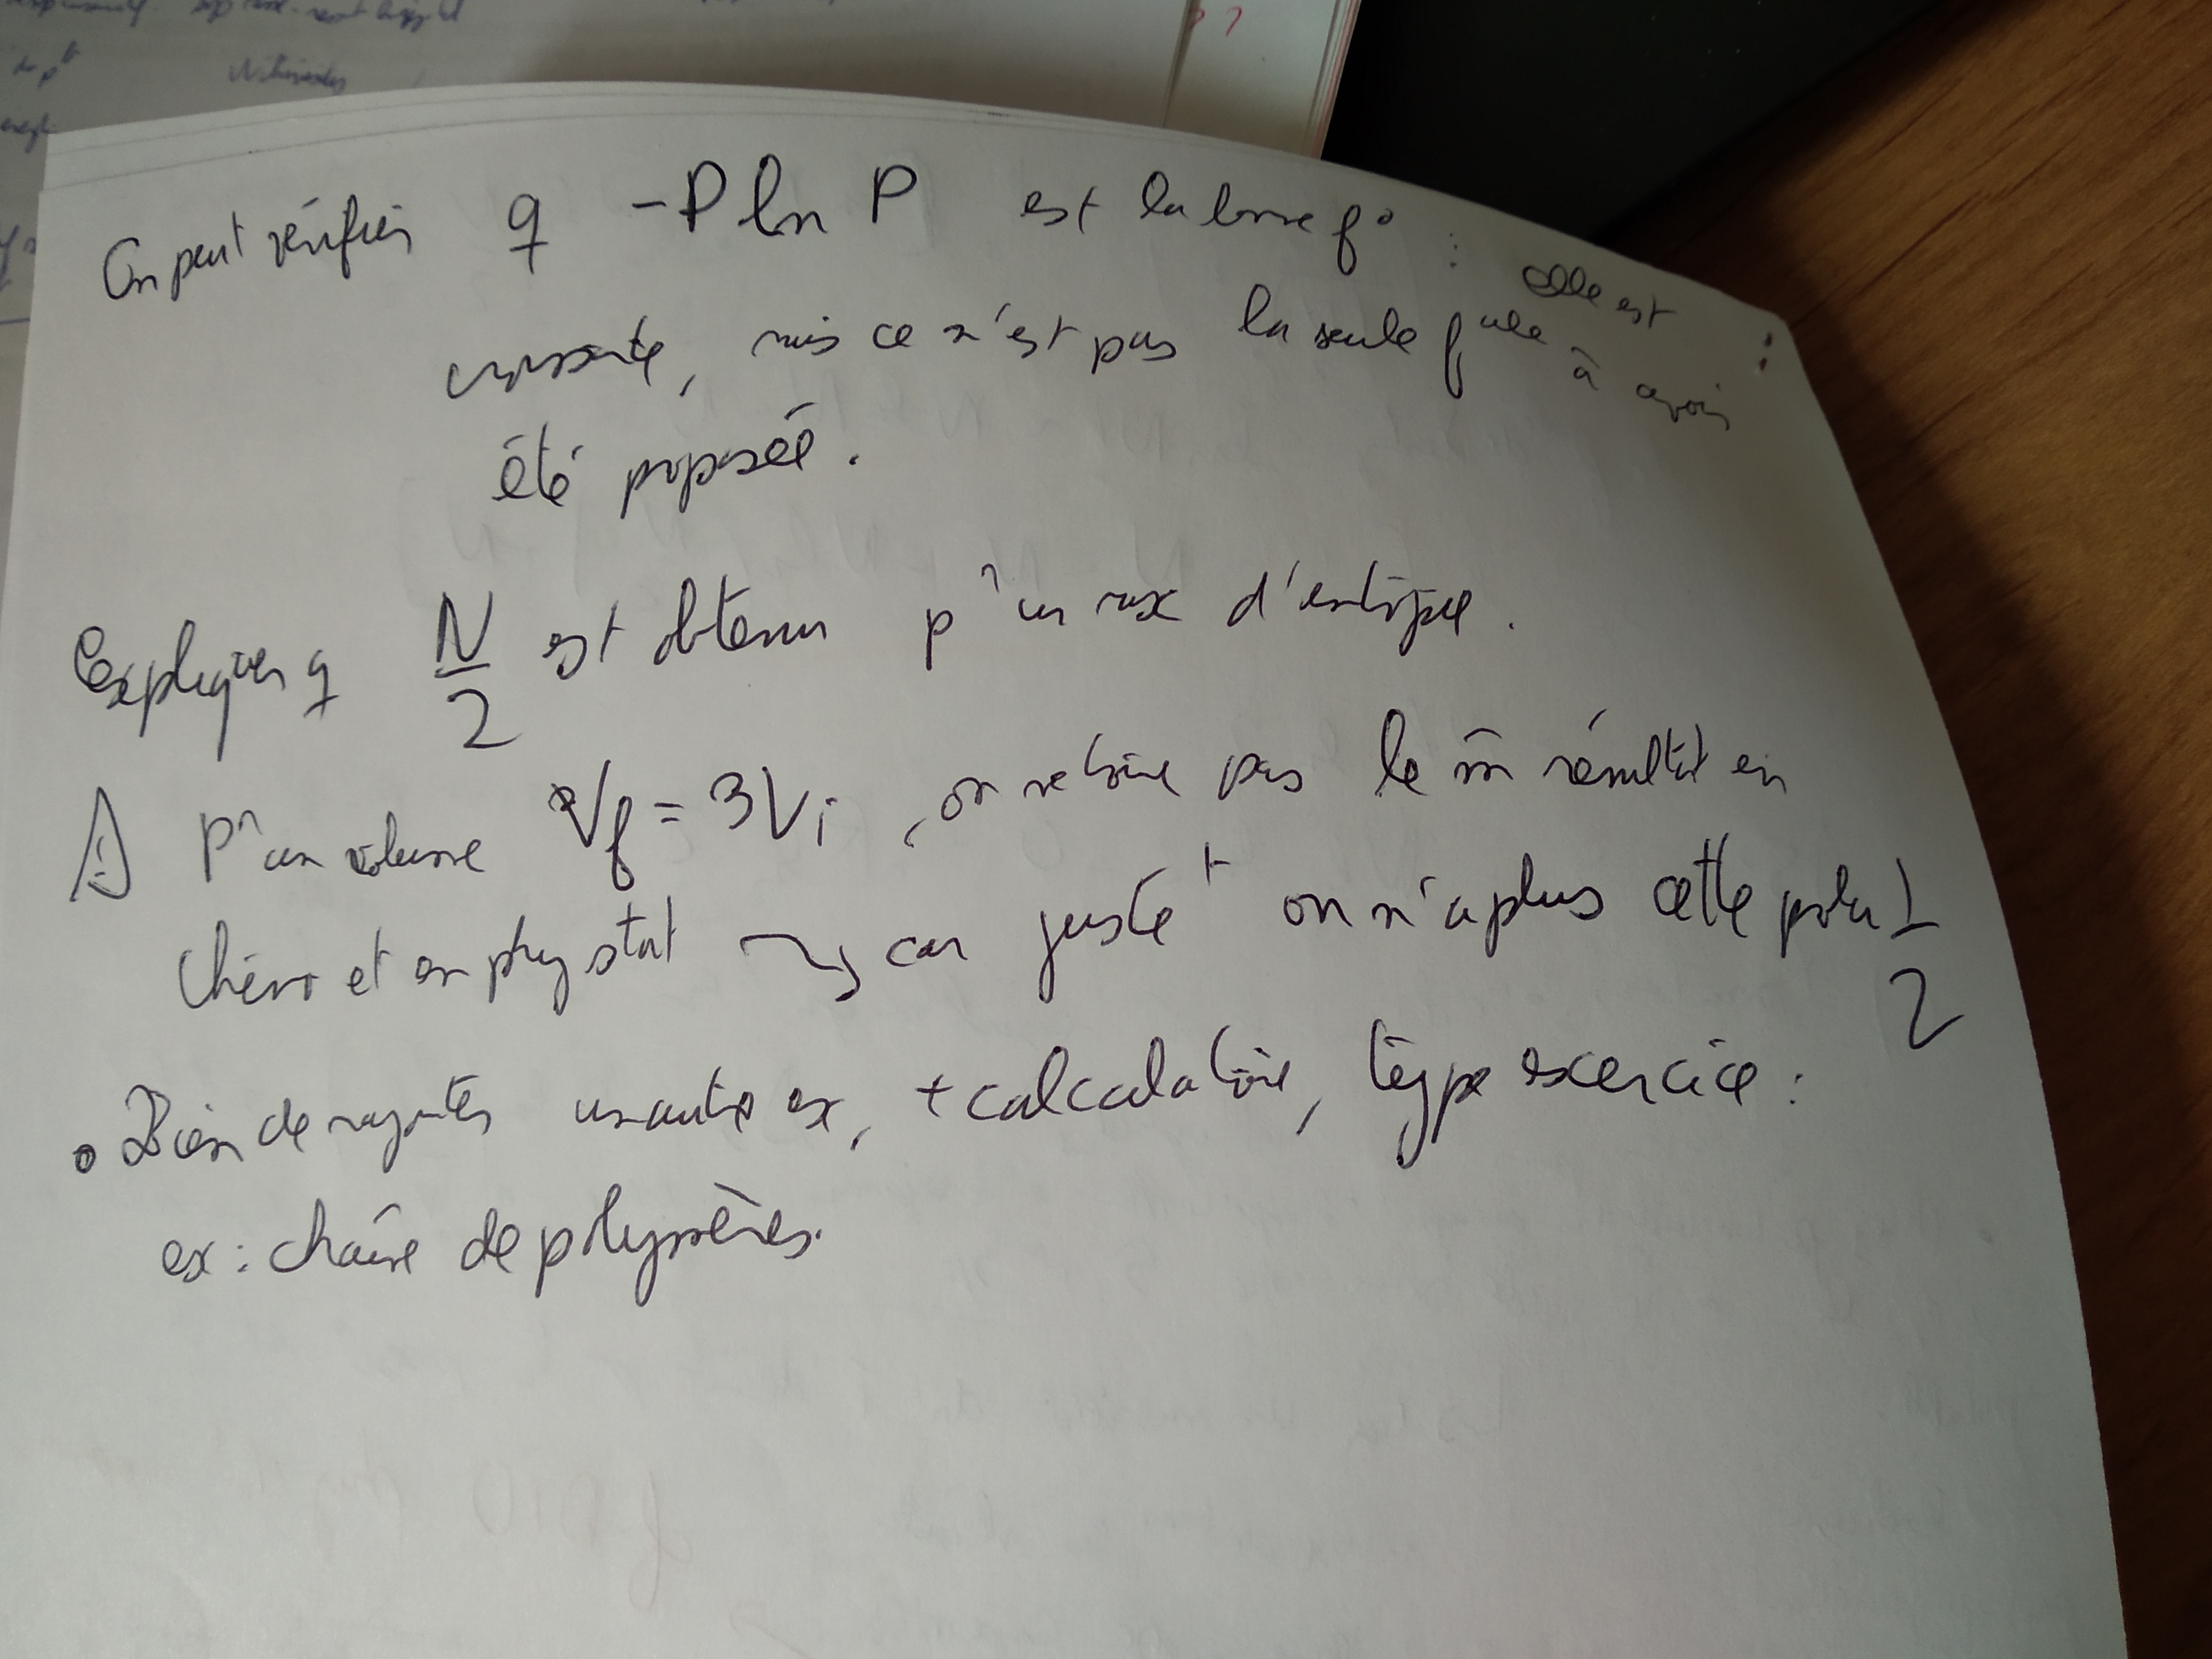 On peut vérifier q -P ln P est la bonne f° : elle est
croissante, mais ce n'est pas la seule fule à avoir
été proposée.
Expliquer q N/2 est obtenu pr un max d'entropie.
⚠ Pr un volume Vf = 3Vi, on retrouve pas le m̂ résultat en
thermo et en phy stat ⇝ car justet on n'a plus cette proba 1/2
• Bien de rajouter un autre ex, + calculatoire, type exercice :
ex : chaîne de polymères.